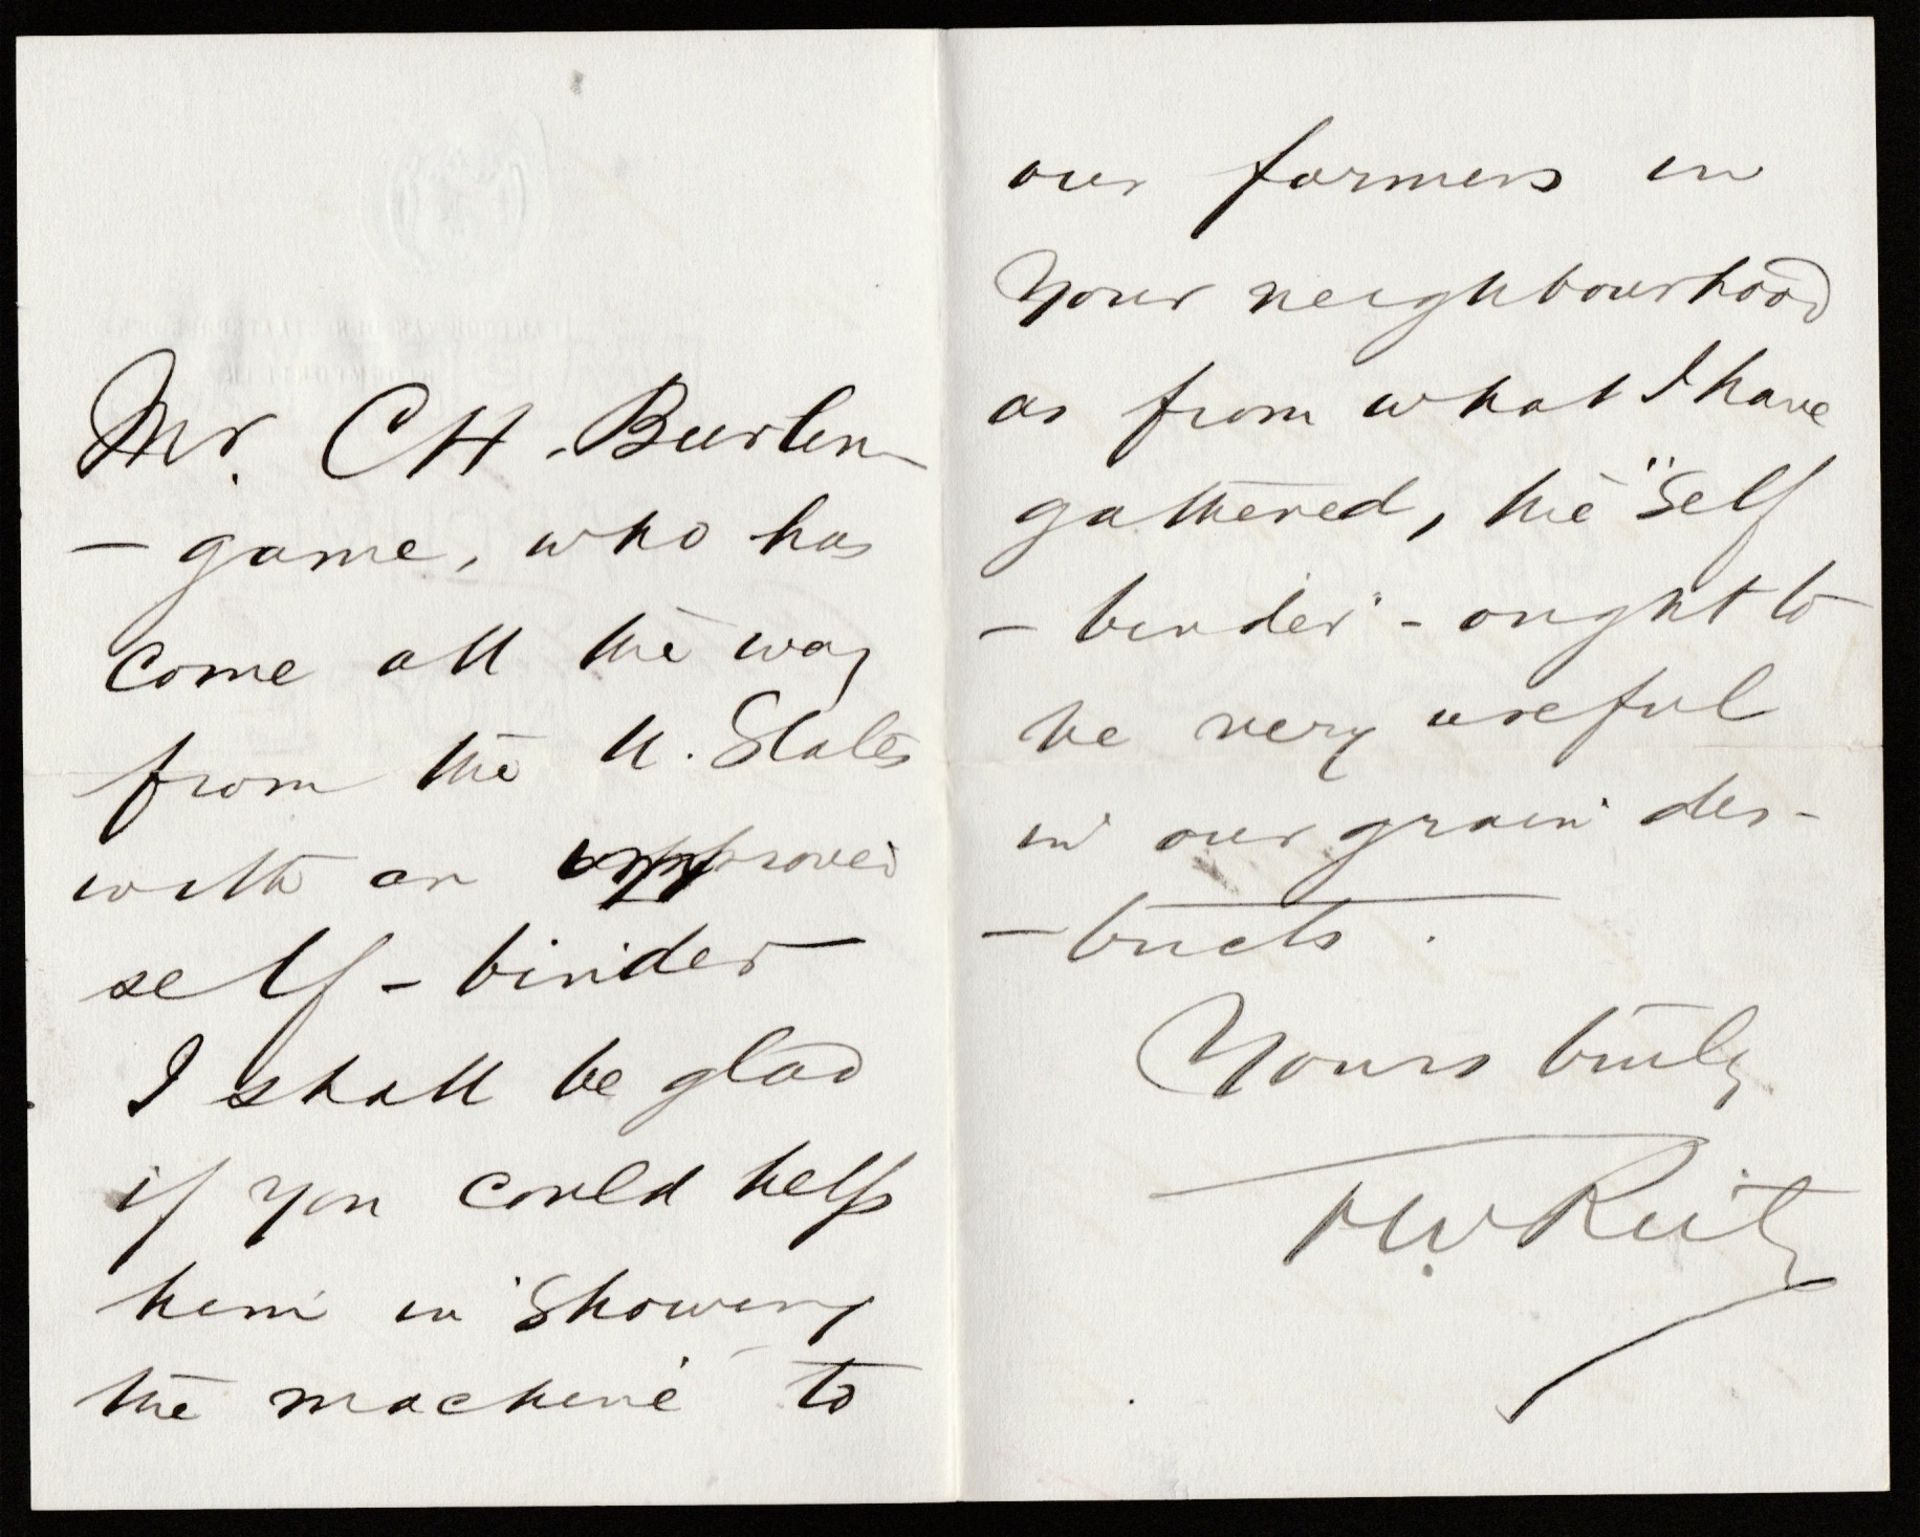 Mr. C H. Burlin-
- game, who has
come all the way
from the U. States
with an approved
self - binder
I shall be glad
if you could help
him in showing
the machine to
our farmers in
Your neighbourhood
as from what I have
gathered, the "Self
- binder" - ought to
be very useful
in our grain dis-
- tricts.
Yours truly
F W Reitz